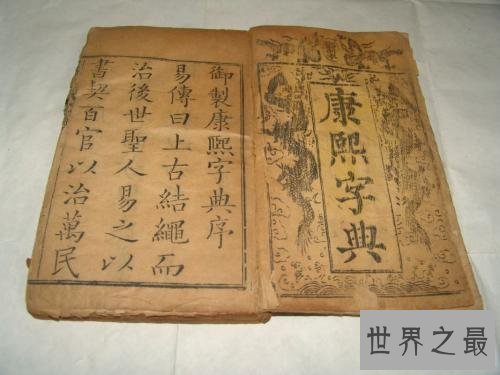 康熙字典
御製康熙字典序
易傳曰上古結繩而
治後世聖人易之以
書契百官以治萬民
世界之最